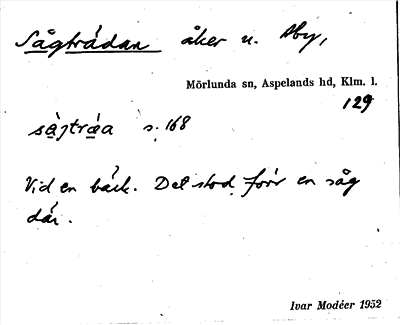 Sågträdan åker u. Åby,
Mörlunda sn, Aspelands hd, Klm. l.
129
såjträa s. 168
Vid en bäck. Det stod förr en såg
där.
Ivar Modéer 1952